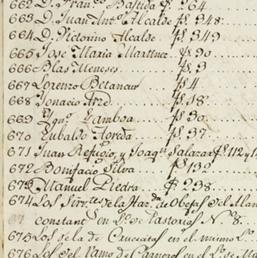 662 D. Fran.co Bastida $ 264
663 D. Juan Ant.o Alcalde $ 248.
664 D. Victorino Alcalde $ 349
665 Jose Maria Martinez $ 30
666 Blas Meneses $ 3
667 Lorenzo Betancur $ 4
668 Ignacio $ 18.
669 Zamboa $ 30.
670 Tubaldo $ 37.
671 Juan Refugio y Joaq.n Salazar $ 112 y
672 Bonifacio Silva $ 132
673 Manuel Piedra $ 298.
674 Los de la Haz.da de Obejas del
constan en de Pastorias N.o 8.
675 Los de la de en el mismo
676 Los del Ramo de en el